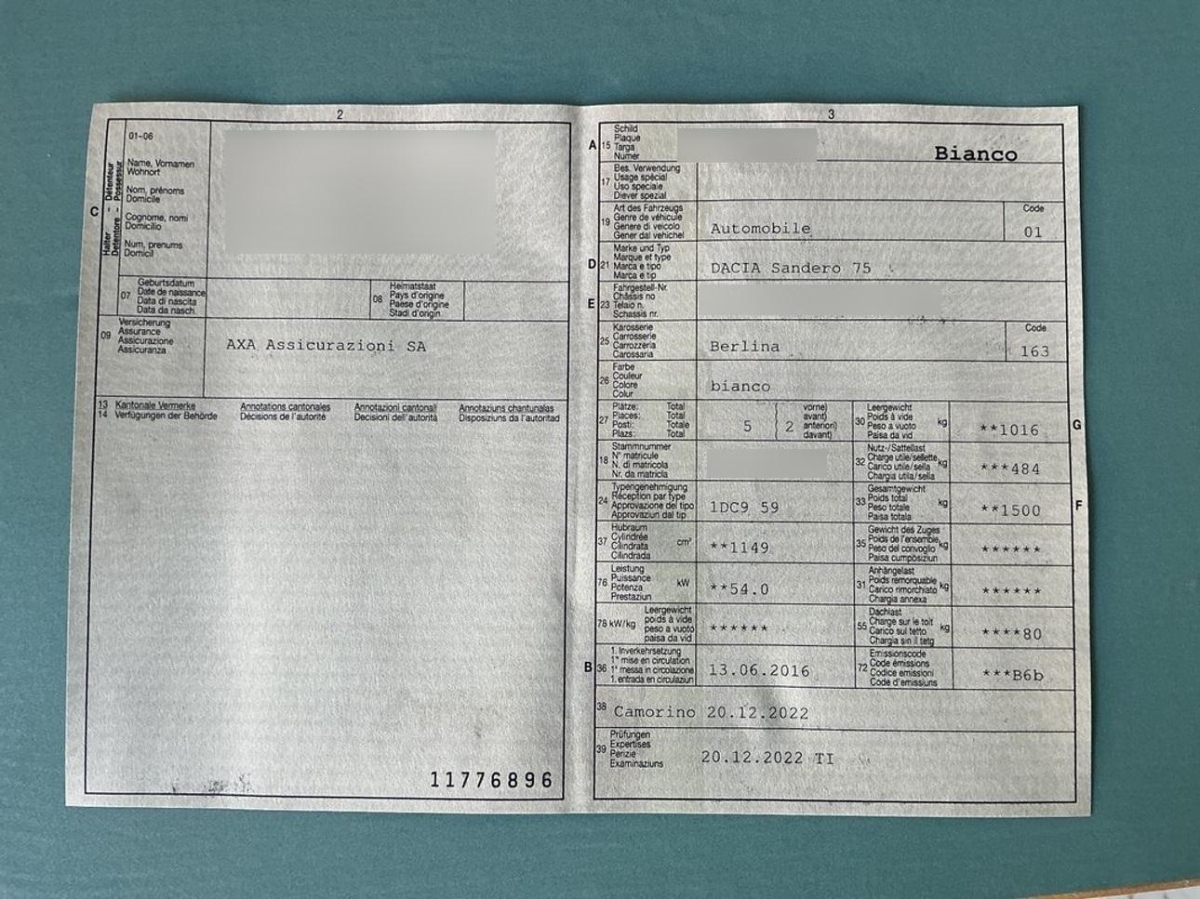 2
01-06
C
Halter - Détenteur
Detentore - Possessur
Name, Vornamen
Wohnort
Nom, prénoms
Domicile
Cognome, nomi
Domicilio
Num, prenums
Domicil
07
Geburtsdatum
Date de naissance
Data di nascita
Data da nasch.
08
Heimatstaat
Pays d'origine
Paese d'origine
Stadi d'origin
09
Versicherung
Assurance
Assicurazione
Assicuranza
AXA Assicurazioni SA
13 Kantonale Vermerke Annotations cantonales Annotazioni cantonali Annotaziuns chantunalas
14 Verfügungen der Behörde Décisions de l'autorité Decisioni dell'autorità Disposiziuns da l'autoritad
11776896
3
A 15
Schild
Plaque
Targa
Numer
Bianco
17
Bes. Verwendung
Usage spécial
Uso speciale
Diever spezial
19
Art des Fahrzeugs
Genre de véhicule
Genere di veicolo
Gener dal vehichel
Automobile
Code
01
D 21
Marke und Typ
Marque et type
Marca e tipo
Marca e tip
DACIA Sandero 75
E 23
Fahrgestell-Nr.
Châssis no
Telaio n.
Schassis nr.
25
Karosserie
Carrosserie
Carrozzeria
Carossaria
Berlina
Code
163
26
Farbe
Couleur
Colore
Colur
bianco
27
Plätze: Total
Places: Total
Posti: Totale
Plazs: Total
5
2
vorne)
avant)
anteriori)
davant)
30
Leergewicht
Poids à vide
Peso a vuoto
Paisa da vid
kg
**1016
G
18
Stammnummer
N° matricule
N. di matricola
Nr. da matricla
32
Nutz-/Sattellast
Charge utile/sellette
Carico utile/sella
Chargia utila/sella
kg
***484
24
Typengenehmigung
Réception par type
Approvazione del tipo
Approvaziun dal tip
1DC9 59
33
Gesamtgewicht
Poids total
Peso totale
Paisa totala
kg
**1500
F
37
Hubraum
Cylindrée
Cilindrata
Cilindrada
cm³
**1149
35
Gewicht des Zuges
Poids de l'ensemble
Peso del convoglio
Paisa cumposiziun
kg
******
76
Leistung
Puissance
Potenza
Prestaziun
kW
**54.0
31
Anhängelast
Poids remorquable
Carico rimorchiato
Chargia annexa
kg
******
78 kW/kg
Leergewicht
poids à vide
peso a vuoto
paisa da vid
******
55
Dachlast
Charge sur le toit
Carico sul tetto
Chargia sin il tetg
kg
****80
B 36
1. Inverkehrsetzung
1re mise en circulation
1a messa in circolazione
1. entrada en circulaziun
13.06.2016
72
Emissionscode
Code émissions
Codice emissioni
Code d'emissiuns
***B6b
38
Camorino 20.12.2022
39
Prüfungen
Expertises
Perizie
Examinaziuns
20.12.2022 TI